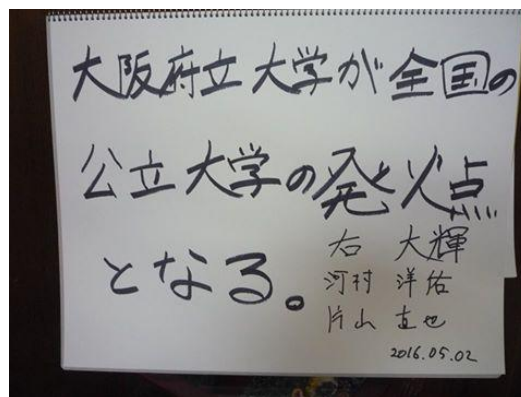 大阪府立大学が全国の
公立大学の発火点
となる。
右 大輝
河村 洋佑
片山 直也
2016.05.02